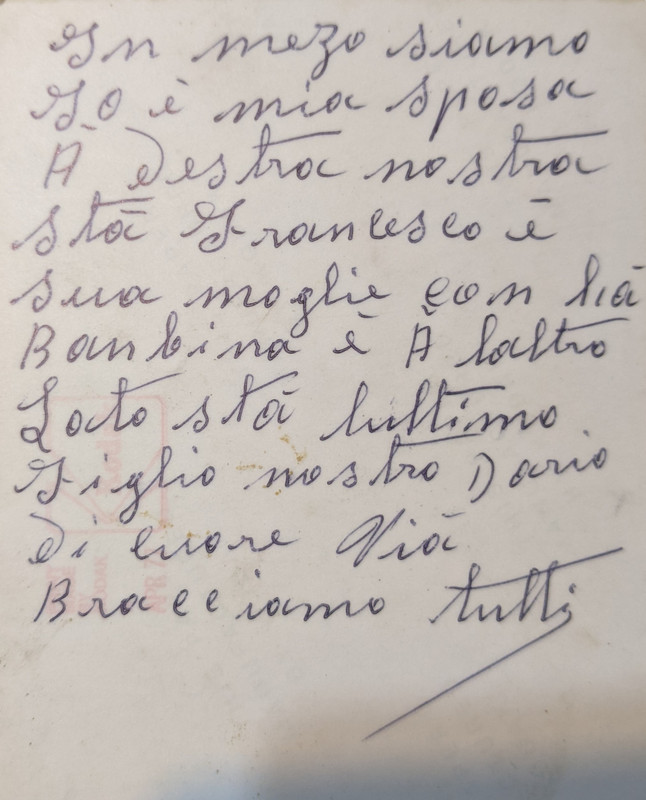 In mezo siamo
Io è mia sposa
À destra nostra
stà Francesco è
sua moglie con la
Banbina è À laltro
Lato stà lulltimo
Figlio nostro Dario
di cuore Vià
Bracciamo tutti